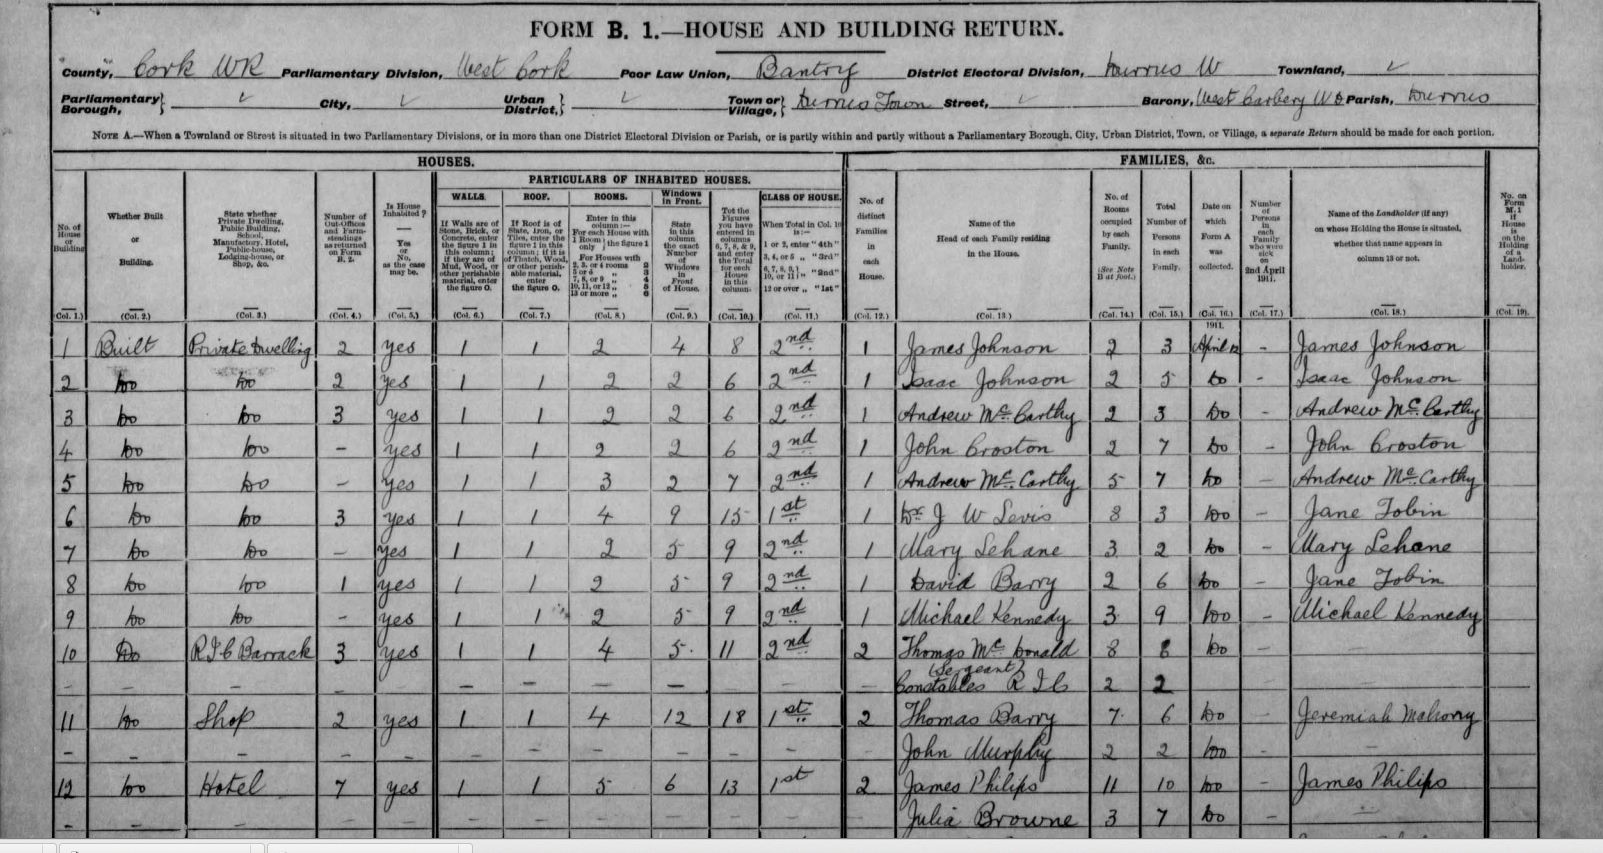 FORM B. 1.—HOUSE AND BUILDING RETURN.
County, Cork WR Parliamentary Division, West Cork Poor Law Union, Bantry District Electoral Division, Durrus W Townland, ✓
Parliamentary Borough,} ✓ City, ✓ Urban District,} ✓ Town or Village,} Durrus Town Street, ✓ Barony, West Carbery W D Parish, Durrus
NOTE A.—When a Townland or Street is situated in two Parliamentary Divisions, or in more than one District Electoral Division or Parish, or is partly within and partly without a Parliamentary Borough, City, Urban District, Town, or Village, a separate Return should be made for each portion.
HOUSES. FAMILIES, &c.
PARTICULARS OF INHABITED HOUSES.
No. of House or Building
Whether Built or Building.
State whether Private Dwelling, Public Building, School, Manufactory, Hotel, Public-house, Lodging-house, or Shop, &c.
Number of Out-Offices and Farm-steadings as returned on Form B. 2.
Is House Inhabited? Yes or No, as the case may be.
WALLS. If Walls are of Stone, Brick, or Concrete, enter the figure 1 in this column; if they are of Mud, Wood, or other perishable material, enter the figure 0.
ROOF. If Roof is of Slate, Iron, or Tiles, enter the figure 1 in this column; if it is of Thatch, Wood, or other perishable material, enter the figure 0.
ROOMS. Enter in this column:— For each House with 1 Room only } the figure 1
For Houses with
2, 3, or 4 rooms 2
5 or 6 " 3
7, 8, or 9 " 4
10, 11, or 12 " 5
13 or more " 6
Windows in Front. State in this column the exact Number of Windows in Front of House.
Tot the Figures you have entered in columns 6, 7, 8, 9, and enter the Total for each House in this column.
CLASS OF HOUSE. When Total in Col. 10 is:—
1 or 2, enter "4th"
3, 4, or 5 " "3rd"
6, 7, 8, 9, 10, or 11 } " "2nd"
12 or over " "1st"
No. of distinct Families in each House.
Name of the Head of each Family residing in the House.
No. of Rooms occupied by each Family. (See Note B at foot.)
Total Number of Persons in each Family.
Date on which Form A was collected.
Number of Persons in each Family who were sick on 2nd April 1911.
Name of the Landholder (if any) on whose Holding the House is situated, whether that name appears in column 13 or not.
No. on Form M. 1 if House is on the Holding of a Landholder.
(Col. 1.) (Col. 2.) (Col. 3.) (Col. 4.) (Col. 5.) (Col. 6.) (Col. 7.) (Col. 8.) (Col. 9.) (Col. 10.) (Col. 11.) (Col. 12.) (Col. 13.) (Col. 14.) (Col. 15.) (Col. 16.) (Col. 17.) (Col. 18.) (Col. 19).
1911.
1 Built Private Dwelling 2 yes 1 1 2 4 8 2nd 1 James Johnson 2 3 April 12 - James Johnson
2 Do Do 2 yes 1 1 2 2 6 2nd 1 Isaac Johnson 2 5 Do - Isaac Johnson
3 Do Do 3 yes 1 1 2 2 6 2nd 1 Andrew Mc Carthy 2 3 Do - Andrew Mc Carthy
4 Do Do - yes 1 1 2 2 6 2nd 1 John Croston 2 7 Do - John Croston
5 Do Do - yes 1 1 3 2 7 2nd 1 Andrew Mc Carthy 5 7 Do - Andrew Mc Carthy
6 Do Do 3 yes 1 1 4 9 15 1st 1 Dr J W Levis 8 3 Do - Jane Tobin
7 Do Do - yes 1 1 2 5 9 2nd 1 Mary Lehane 3 2 Do - Mary Lehane
8 Do Do 1 yes 1 1 2 5 9 2nd 1 David Barry 2 6 Do - Jane Tobin
9 Do Do - yes 1 1 2 5 9 2nd 1 Michael Kennedy 3 9 Do - Michael Kennedy
10 Do R I C Barrack 3 yes 1 1 4 5 11 2nd 2 Thomas Mc Donald 8 8 Do - -
(Sergeant)
- - - - - - - - - - - Constables R I C 2 2
11 Do Shop 2 yes 1 1 4 12 18 1st 2 Thomas Barry 7 6 Do - Jeremiah Mahony
- - - - - - - - - - - - John Murphy 2 2 Do - -
12 Do Hotel 7 yes 1 1 5 6 13 1st 2 James Philips 11 10 Do - James Philips
- - - - - - - - - - - - Julia Browne 3 7 Do -